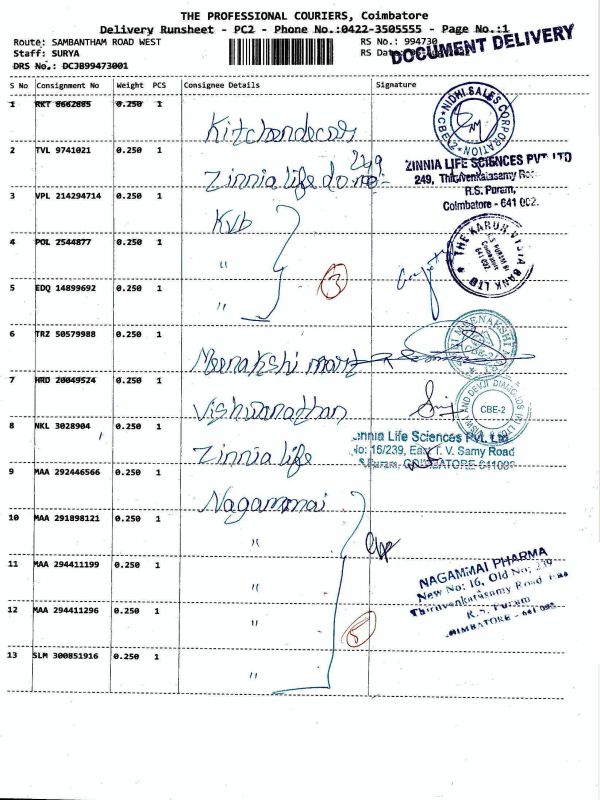 THE PROFESSIONAL COURIERS, Coimbatore
Delivery Runsheet - PC2 - Phone No.:0422-3505555 - Page No.:1
Route: SAMBANTHAM ROAD WEST
RS No.: 994730
Staff: SURYA
RS Date:
DOCUMENT DELIVERY
DRS No.: DCJB99473001
S No Consignment No Weight PCS Consignee Details Signature
1 RKT 8662885 0.250 1
NIDHI SALES CORPORATION CBE-2
2 TVL 9741021 0.250 1 Zinnia life
249
ZINNIA LIFE SCIENCES PVT LTD
249, Thiruvenkatasamy Road
R.S. Puram,
Coimbatore - 641 002.
3 VPL 214294714 0.250 1 Kvb
4 POL 2544877 0.250 1 "
THE KARUR VYSYA BANK LTD
5 EDQ 14899692 0.250 1 "
3
6 TRZ 50579988 0.250 1 Meenakshi mart
SRI MEENAKSHI CBE-2
7 HRD 20049524 0.250 1 Vishwanathan
CBE-2
8 NKL 3028904 0.250 1 Zinnia life
Zinnia Life Sciences Pvt. Ltd
No: 16/239, East T. V. Samy Road
R.S.Puram, COIMBATORE-641002
9 MAA 292446566 0.250 1 Nagammai
10 MAA 291898121 0.250 1 "
11 MAA 294411199 0.250 1 "
NAGAMMAI PHARMA
New No: 16, Old No: 239
Thiruvenkatasamy Road East
R.S. Puram
COIMBATORE - 641 002
12 MAA 294411296 0.250 1 "
5
13 SLM 300851916 0.250 1 "